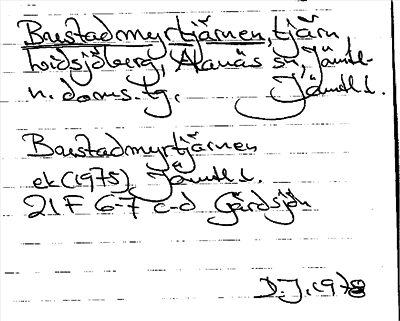 Bustadmyrtjärnen, tjärn
hidsjöberg, Alanäs sn, Jämtl.
n. doms. tg. Jämtl l.
Bustadmyrtjärnen
ek (1975) Jämtl l.
21F 6-7 c-d Gärdsjön
D.J. 1978